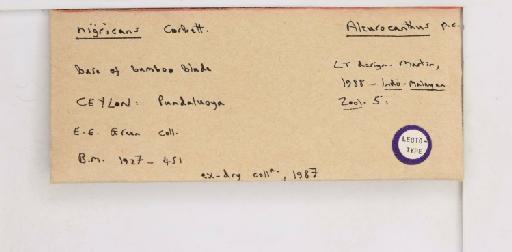 nigricans Corbett.
Base of bamboo blade
CEYLON: Pundaluoya
E.E. Green coll.
B.M. 1927-451
ex-dry colln., 1987
Aleurocanthus p.c.
LT design. Martin,
1988 - Indo-Malayan
Zool. 5:
LECTO-
TYPE